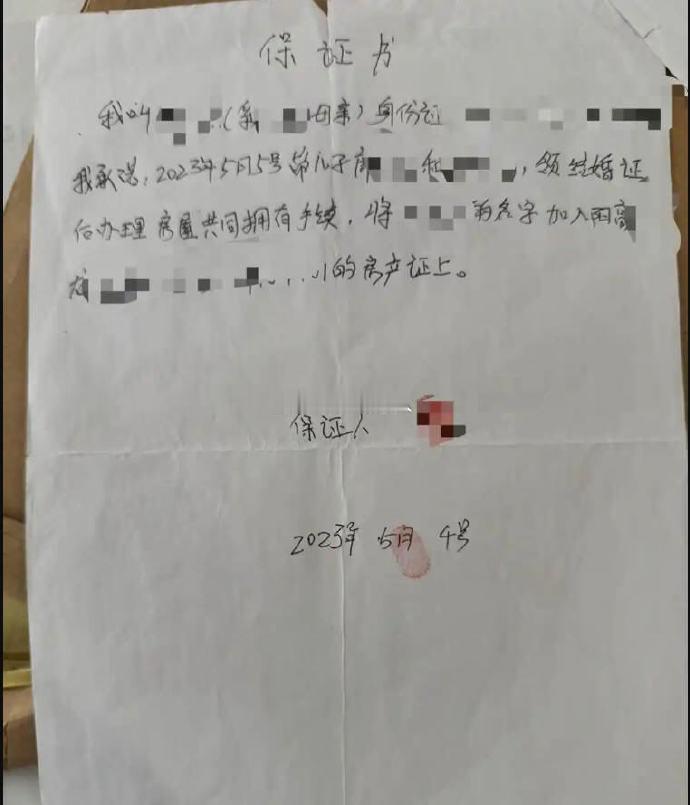 保证书
我叫(母亲)身份证
我承诺,2023年5月5号第儿子和,领结婚证
后办理房屋共同拥有手续,将的名字加入
的房产证上。
保证人
2023年5月4号